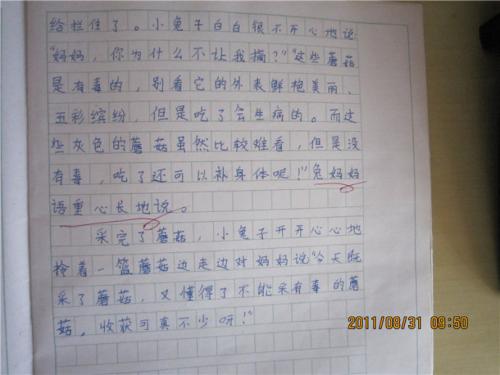 给拦住了。小兔子白白很不开心地说
“妈妈,你为什么不让我摘?”“这些蘑菇
是有毒的,别看它的外表鲜艳美丽、
五彩缤纷,但是吃了会生病的。而这
些灰色的蘑菇虽然比较难看,但是没
有毒,吃了还可以补身体呢!”兔妈妈
语重心长地说。
采完了蘑菇,小兔子开开心心地
拎着一篮蘑菇边走边对妈妈说“今天既
采了蘑菇,又懂得了不能采有毒的蘑
菇,收获可真不少呀!”
2011/08/31 09:50